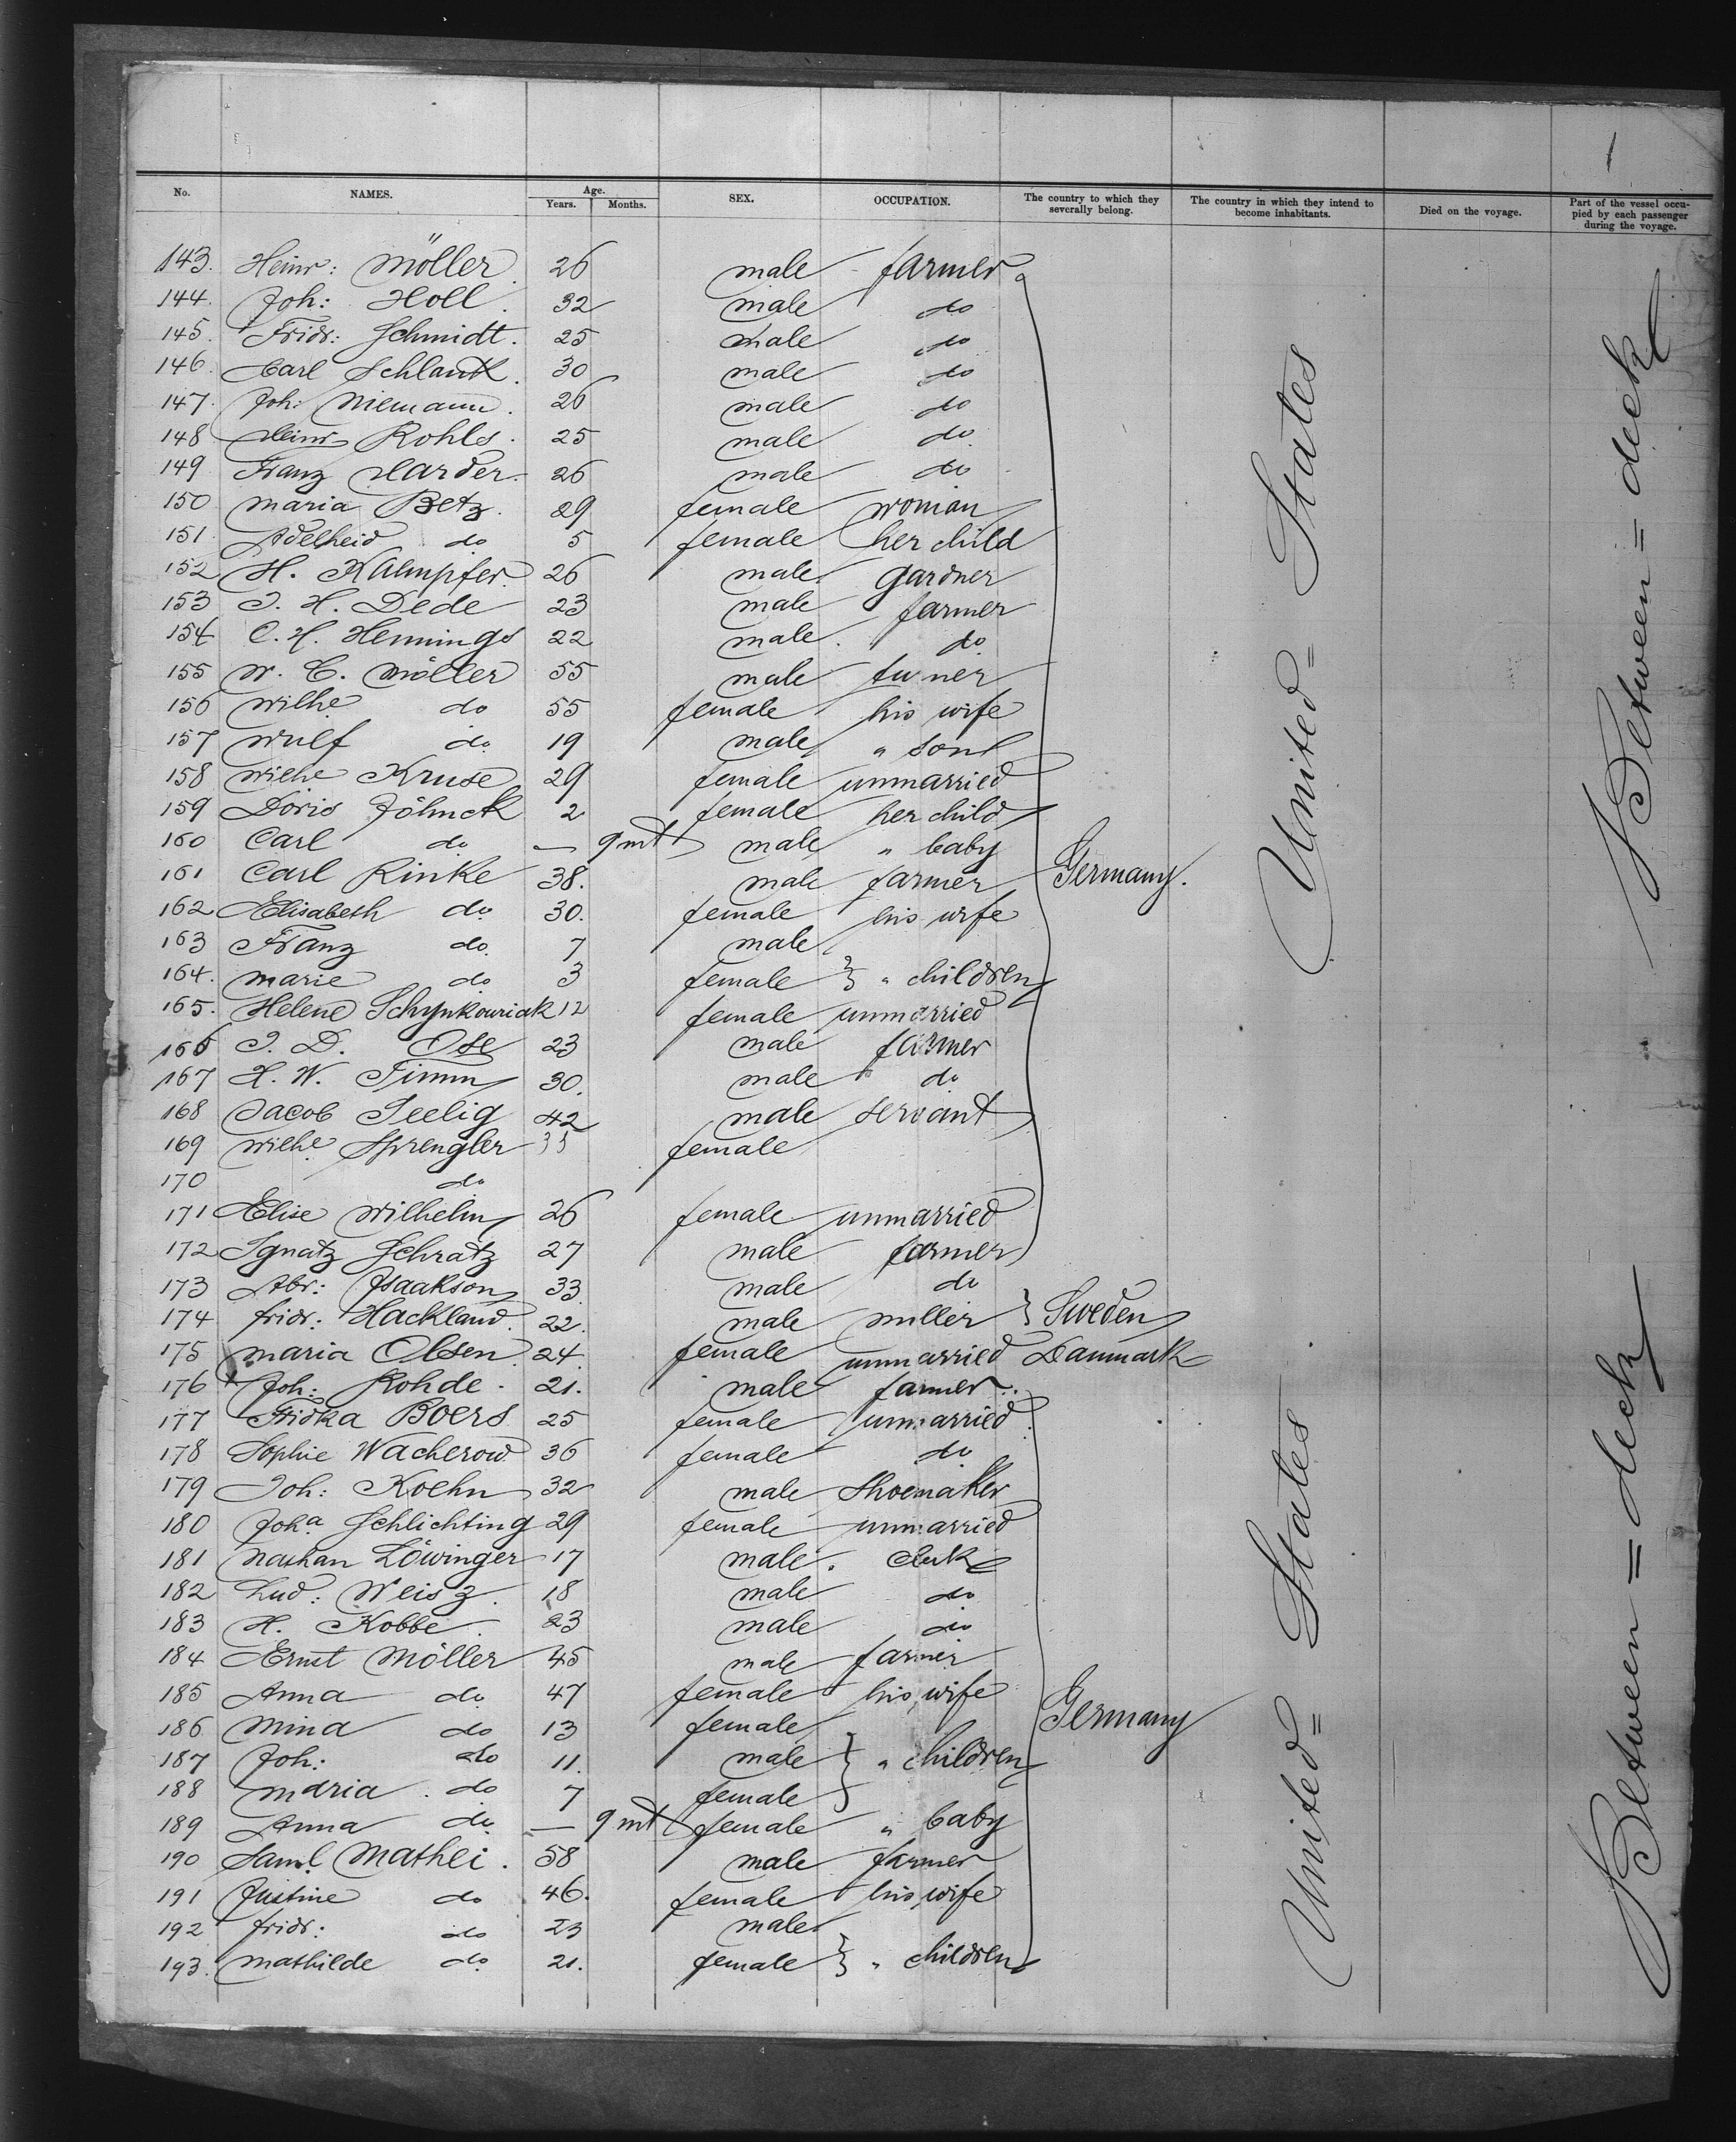 No. NAMES. Age. Years. Months. SEX. OCCUPATION. The country to which they severally belong. The country in which they intend to become inhabitants. Died on the voyage. Part of the vessel occupied by each passenger during the voyage.
143. Heinr: Möller 26 male farmer
144. Joh: Holl. 32 male do
145. Fridr: Schmidt. 25 male do
146. Carl Schlank. 30 male do
147. Joh: Niemann. 26 male do
148 Heinr Rohls. 25 male do
149 Franz Harder. 26 male do
150 Maria Betz. 29 female woman
151 Adelheid do 5 female her child
152 H. Kaempfer. 26 male gardner
153 J. H. Dede 23 male farmer
154 C. H. Hennings 22 male do
155 W. C. Möller 55 male turner
156 Wilhe do 55 female his wife
157 Wulf do 19 male " son
158 Wilhe Kruse 29 female unmarried
159 Doris Jöhnck 2 female her child
160 Carl do — 9 mt male " baby
161 Carl Rinke 38. male farmer Germany.
162 Elisabeth do 30. female his wife
163 Franz do 7 male
164. Marie do 3 female } " children
165. Helene Schynkowiak 12 female unmarried
166 J. D. Ose 23 male farmer
167 H. W. Timm 30. male do
168 Jacob Seelig 42 male servant
169 Wilhe Sprengler 33 female
170 do
171 Elise Wilhelm 26 female unmarried
172 Ignatz Schratz 27 male farmer
173 Abr: Isaakson 33 male do
174 Fridr: Hackland. 22. male miller } Sweden
175 Maria Olsen. 24. female unmarried Danmark
176 Joh: Rohde. 21. male farmer
177 Boers 25 female unmarried
178 Sophie Wacherow 36 female do
179 Joh: Koehn 32 male Shoemaker
180 Joha Schlichting 29 female unmarried
181 Nathan Löwinger 17 male. clerk
182 Lud: Weisz. 18 male do
183 H. Kobbe. 23 male do
184 Ernst Möller 45 male farmer
185 Anna do 47 female his wife Germany
186 Mina do 13 female
187 Joh: do 11. male } " children
188 Maria. do 7 female
189 Anna do — 9 mt female " baby
190 Saml Mathei. 58 male farmer
191 Justine do 46. female his wife
192 Fridr: do 23 male
193. Mathilde do 21. female } " children
United = States
United = States
Between = deck
Between = deck